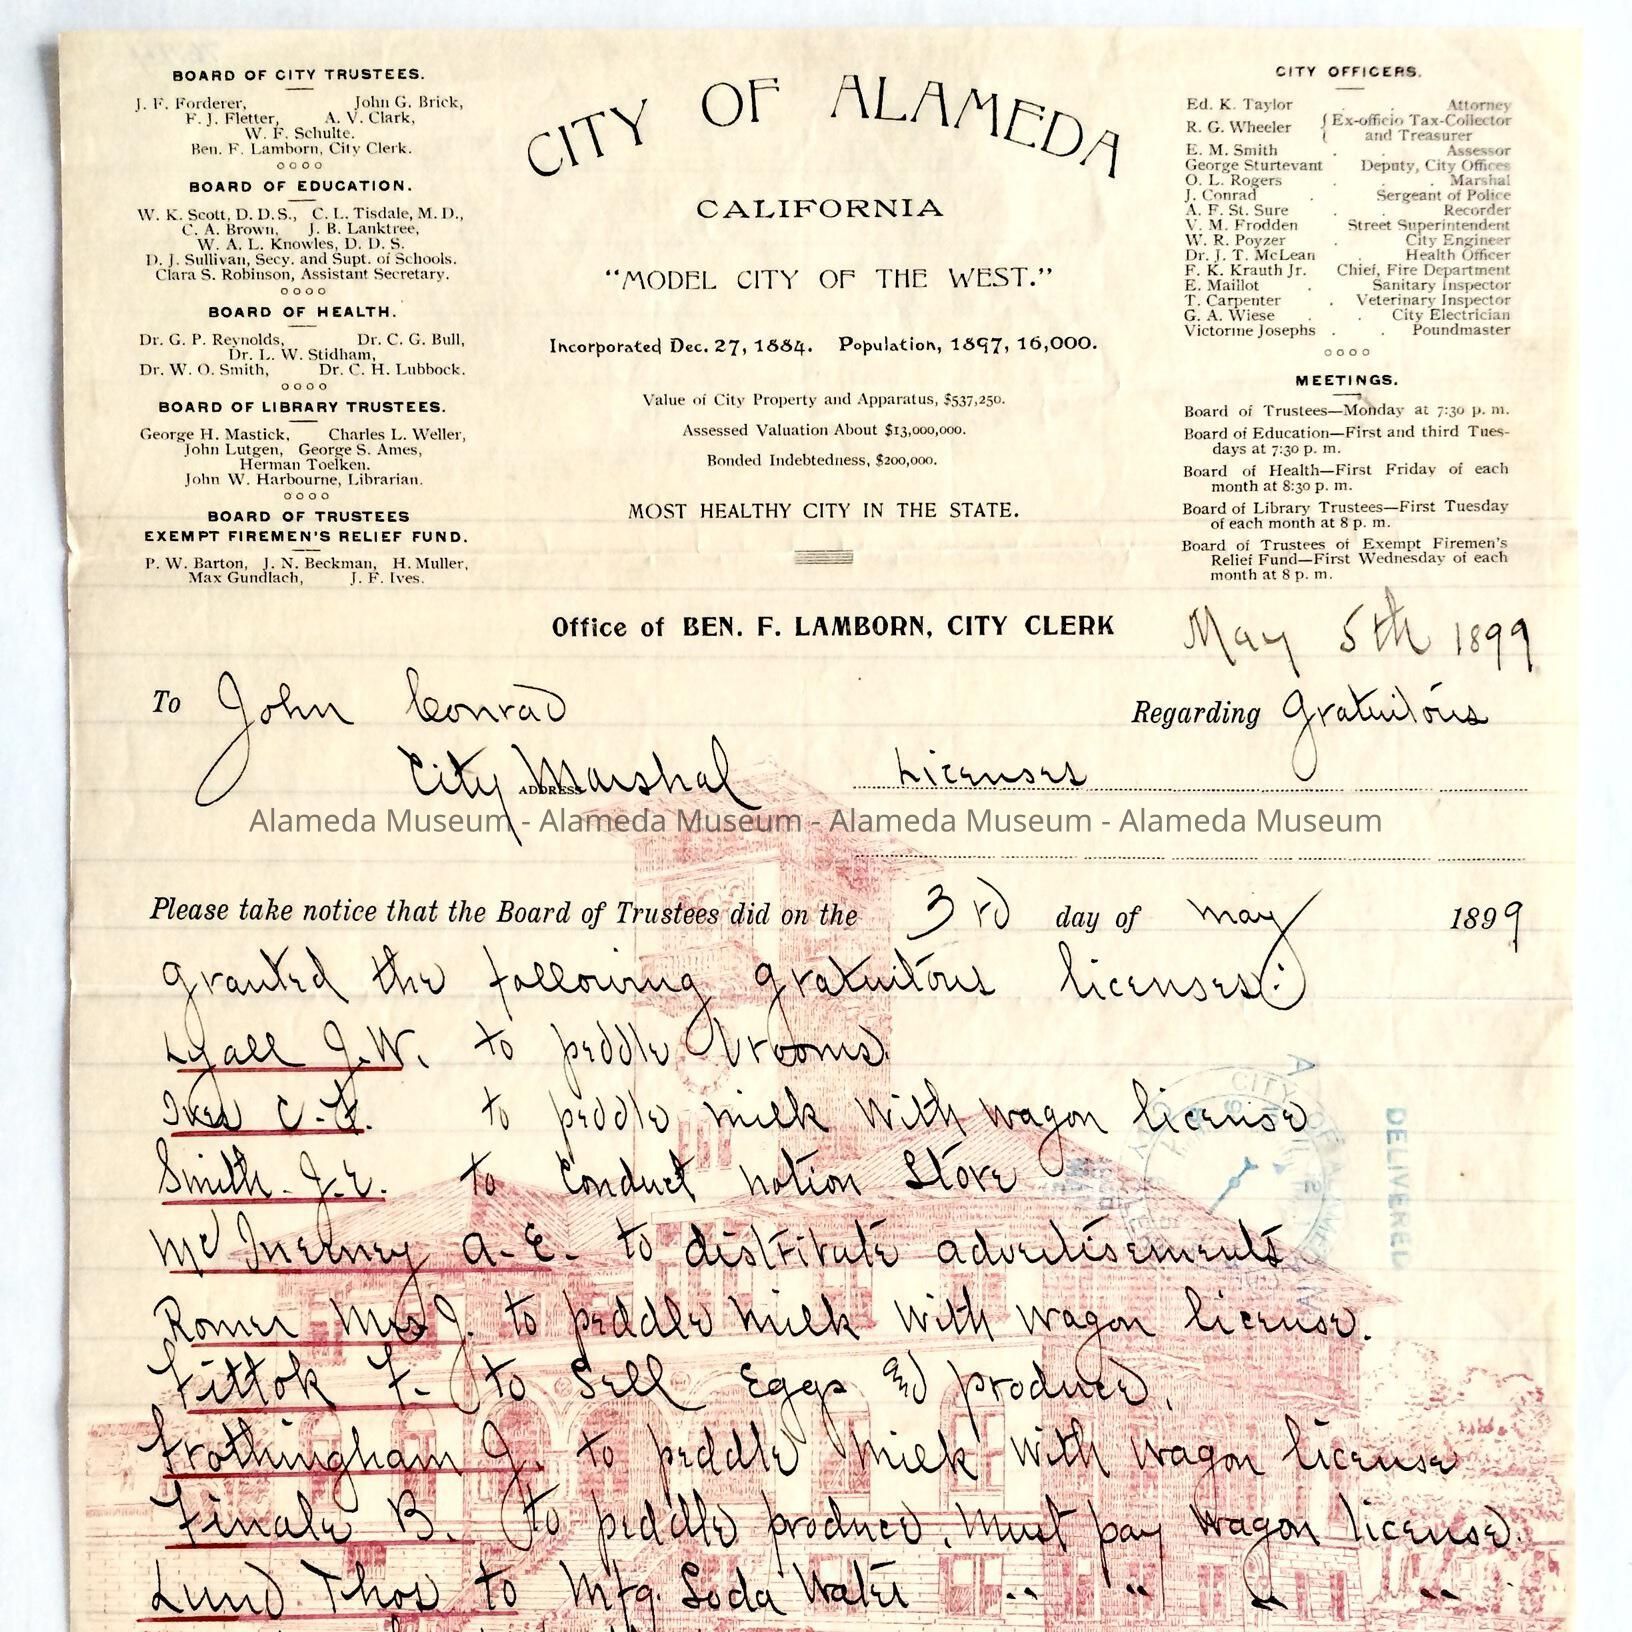 BOARD OF CITY TRUSTEES.
J. F. Forderer, John G. Brick,
F. J. Fletter, A. V. Clark,
W. F. Schulte.
Ben. F. Lamborn, City Clerk.
BOARD OF EDUCATION.
W. K. Scott, D. D. S., C. L. Tisdale, M. D.,
C. A. Brown, J. B. Lanktree,
W. A. L. Knowles, D. D. S.
D. J. Sullivan, Secy. and Supt. of Schools.
Clara S. Robinson, Assistant Secretary.
BOARD OF HEALTH.
Dr. G. P. Reynolds, Dr. C. G. Bull,
Dr. L. W. Stidham,
Dr. W. O. Smith, Dr. C. H. Lubbock.
BOARD OF LIBRARY TRUSTEES.
George H. Mastick, Charles L. Weller,
John Lutgen, George S. Ames,
Herman Toelken.
John W. Harbourne, Librarian.
BOARD OF TRUSTEES
EXEMPT FIREMEN'S RELIEF FUND.
P. W. Barton, J. N. Beckman, H. Muller,
Max Gundlach, J. F. Ives.
CITY OF ALAMEDA
CALIFORNIA
"MODEL CITY OF THE WEST."
Incorporated Dec. 27, 1884. Population, 1897, 16,000.
Value of City Property and Apparatus, $537,250.
Assessed Valuation About $13,000,000.
Bonded Indebtedness, $200,000.
MOST HEALTHY CITY IN THE STATE.
CITY OFFICERS.
Ed. K. Taylor . . Attorney
R. G. Wheeler { Ex-officio Tax-Collector
and Treasurer
E. M. Smith . . Assessor
George Sturtevant Deputy, City Offices
O. L. Rogers . . . Marshal
J. Conrad . Sergeant of Police
A. F. St. Sure . . Recorder
V. M. Frodden Street Superintendent
W. R. Poyzer . City Engineer
Dr. J. T. McLean . Health Officer
F. K. Krauth Jr. Chief, Fire Department
E. Maillot . Sanitary Inspector
T. Carpenter . Veterinary Inspector
G. A. Wiese . . City Electrician
Victorine Josephs . . Poundmaster
MEETINGS.
Board of Trustees—Monday at 7:30 p. m.
Board of Education—First and third Tues-
days at 7:30 p. m.
Board of Health—First Friday of each
month at 8:30 p. m.
Board of Library Trustees—First Tuesday
of each month at 8 p. m.
Board of Trustees of Exempt Firemen's
Relief Fund—First Wednesday of each
month at 8 p. m.
Office of BEN. F. LAMBORN, CITY CLERK
May 5th 1899
To John Conrad
Regarding Gratuitous
City Marshal Licenses
ADDRESS
Alameda Museum - Alameda Museum - Alameda Museum - Alameda Museum
Please take notice that the Board of Trustees did on the 3rd day of May 1899
granted the following gratuitous licenses:
Lyall J.W. to peddle brooms.
Ives C. F. to peddle milk with wagon license
Smith. J.E. to conduct notion Store
McInerney A. E. to distribute advertisements
Romer Mrs J. to peddle milk with wagon license.
Fittok F. to Sell Eggs and produce.
Frothingham J. to peddle milk with wagon license
Finale B. to peddle produce. Must pay wagon license.
Lund Thos to Mfg. Soda Water " " " "
DELIVERED